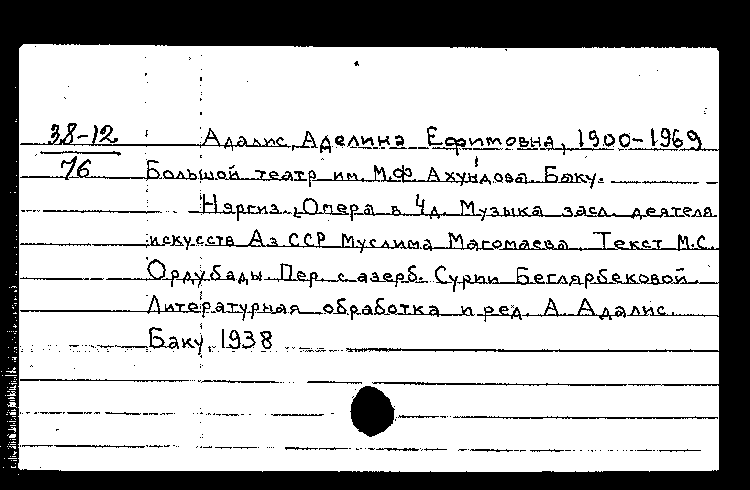 38-12
76
Адалис, Аделина Ефимовна, 1900-1969
Большой театр им. М.Ф. Ахундова. Баку.
Няргиз. Опера в 4д. Музыка засл. деятеля
искусств Аз ССР Муслима Магомаева. Текст М.С.
Ордубады. Пер. с азерб. Сурии Беглярбековой.
Литературная обработка и ред. А. Адалис.
Баку, 1938